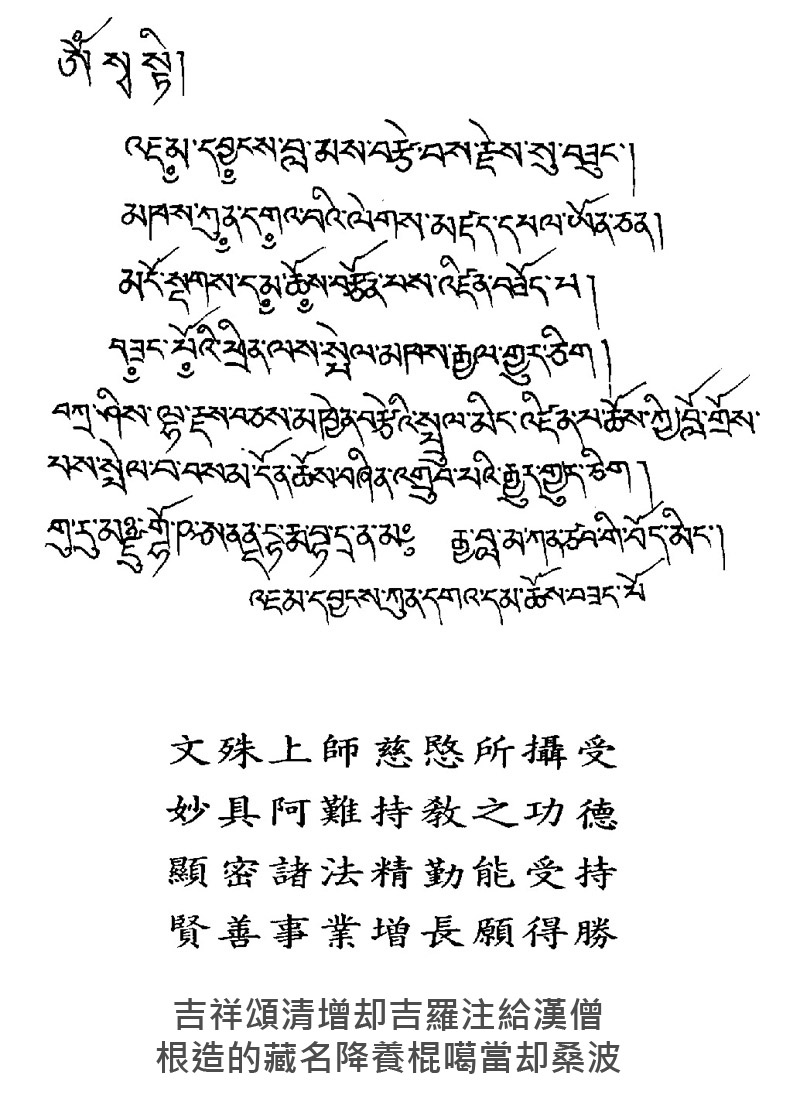 ཨོཾ་སྭ་སྟི།
འཇམ་དབྱངས་བླ་མས་བརྩེ་བས་རྗེས་སུ་བཟུང་།
མཁས་ཀུན་དགའ་བའི་ལེགས་མཛད་དཔལ་ཡོན་ཅན།
མདོ་སྔགས་དམ་ཆོས་བརྩོན་པས་འཛིན་བཟོད་པ།
བཟང་པོའི་ཕྲིན་ལས་སྤེལ་མཁས་རྒྱལ་གྱུར་ཅིག །
བཀྲ་ཤིས་ལྷ་རྫས་བཅས་མཁྱེན་བརྩེའི་སྤྲུལ་མིང་འཛིན་པ་ཆོས་ཀྱི་བློ་གྲོས་
པས་སྤེལ་བ་དོན་ཆོས་བཞིན་འགྲུབ་པའི་རྒྱུར་གྱུར་ཅིག །
གུ་རུ་མཉྫུ་གྷོ་ཥ་ནནྡ་དྷརྨ་བྷ་དྲ་ན་མཿ རྒྱ་བླ་མ་གི་བོད་མིང་།
འཇམ་དབྱངས་ཀུན་དགའ་དམ་ཆོས་བཟང་པོ
文殊上師慈愍所攝受
妙具阿難持教之功德
顯密諸法精勤能受持
賢善事業增長願得勝
吉祥頌清增却吉羅注給漢僧
根造的藏名降養棍噶當却桑波